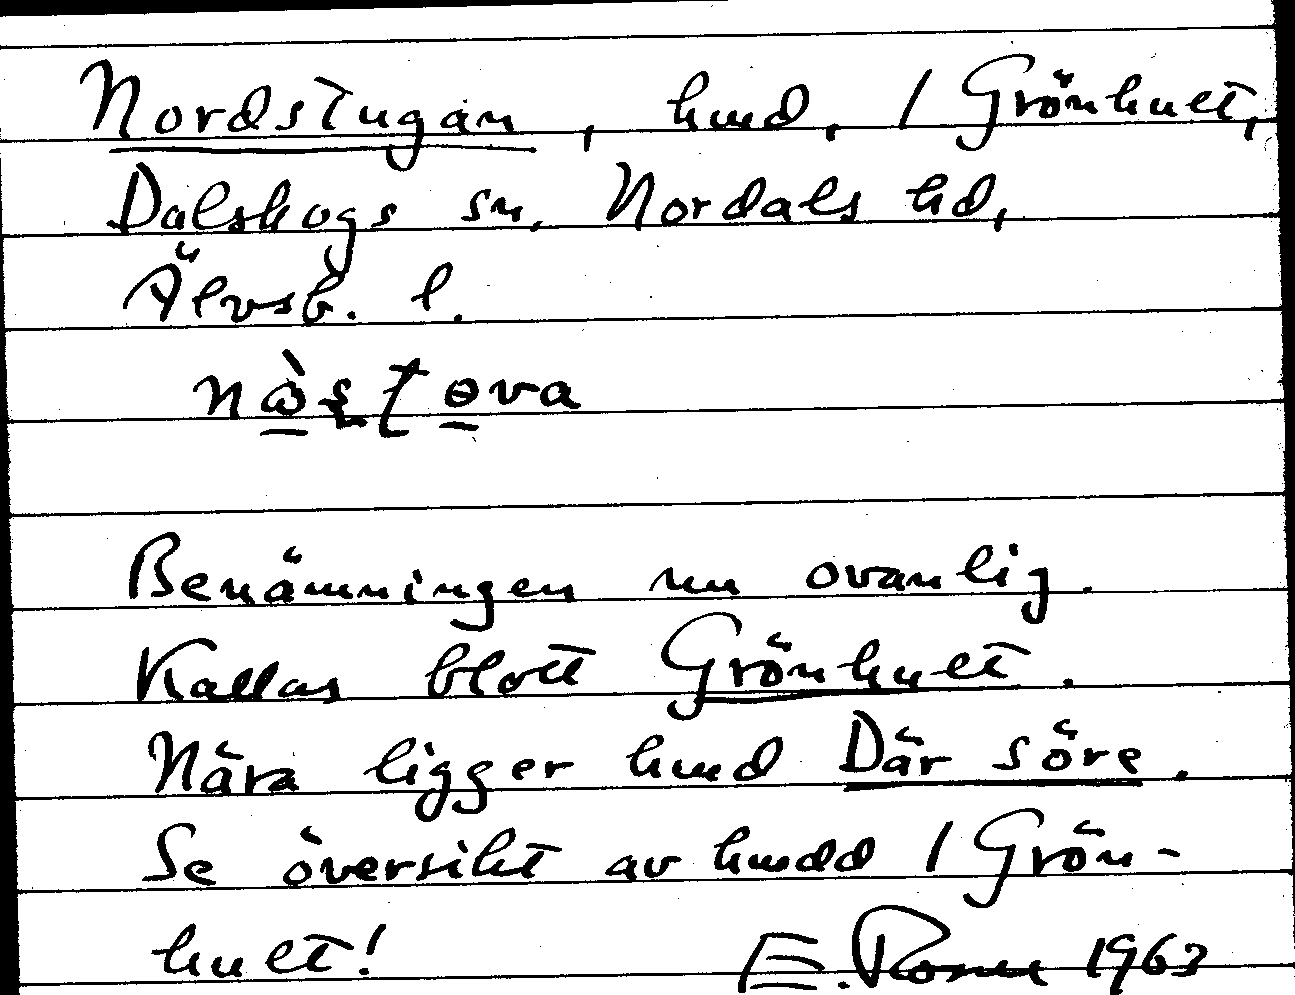 Nordstugan, hmd, 1 Grönhult,
Dalskogs sn, Nordals hd,
Älvsb. l.
Benämningen nu ovanlig.
Kallas blott Grönhult.
Nära ligger hmd Där söre.
Se översikt av hmdd 1 Grön-
hult! E. 1963